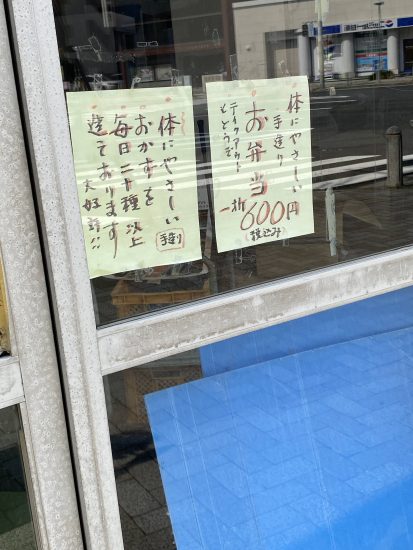 体にやさしい
手造り
お弁当
テイクアウト
もどうぞ
一折
600円
(税込み)
体にやさしい
手造り
おかずを
毎日二十種以上
造っております
大好評!!